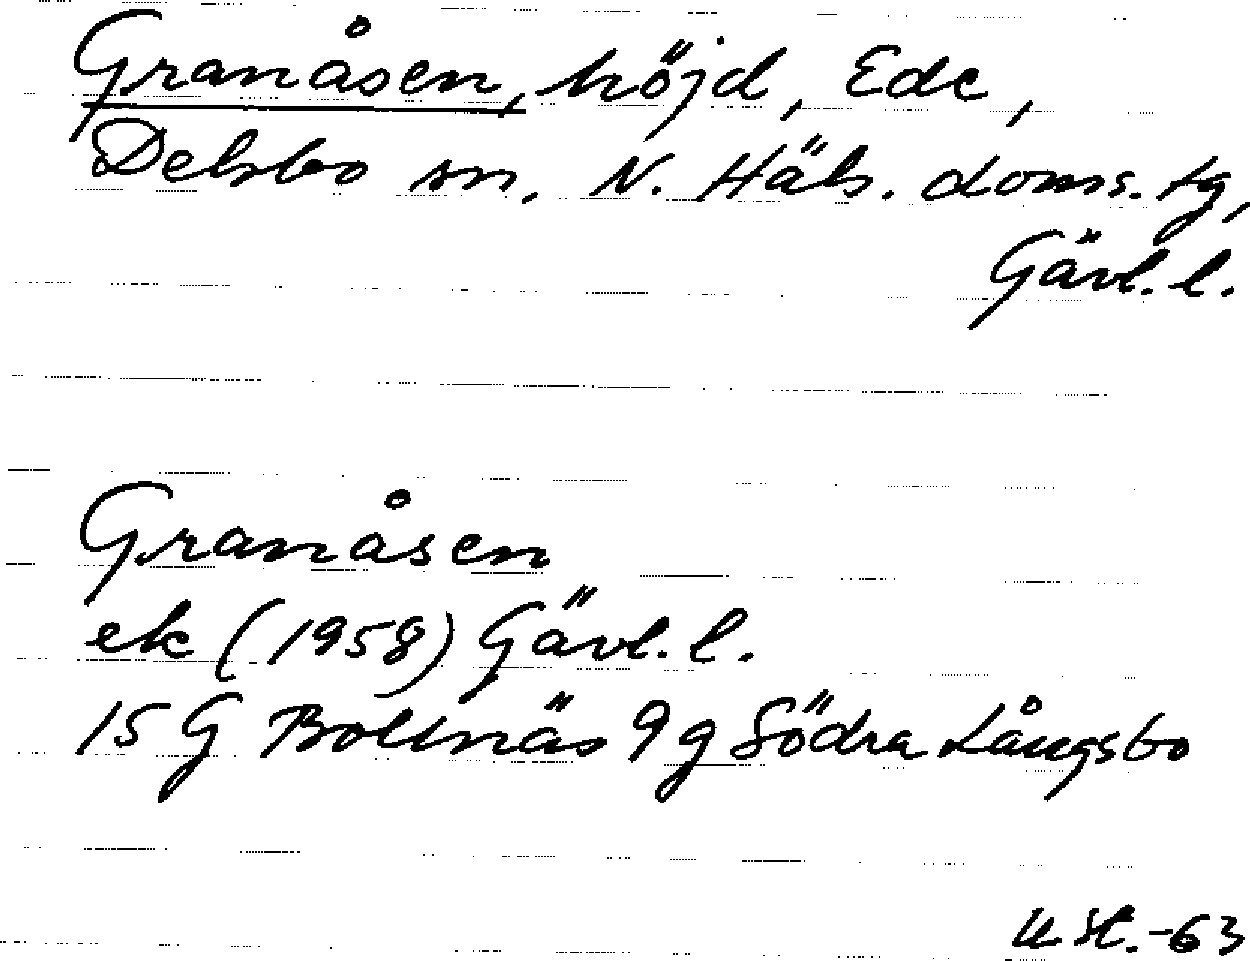 Granåsen, höjd, Ede,
Delsbo sn, N. Häls. doms.tg,
Gävl. l.
Granåsen
ek (1958) Gävl. l.
15 G Bollnäs 9g Södra Långsbo
-63